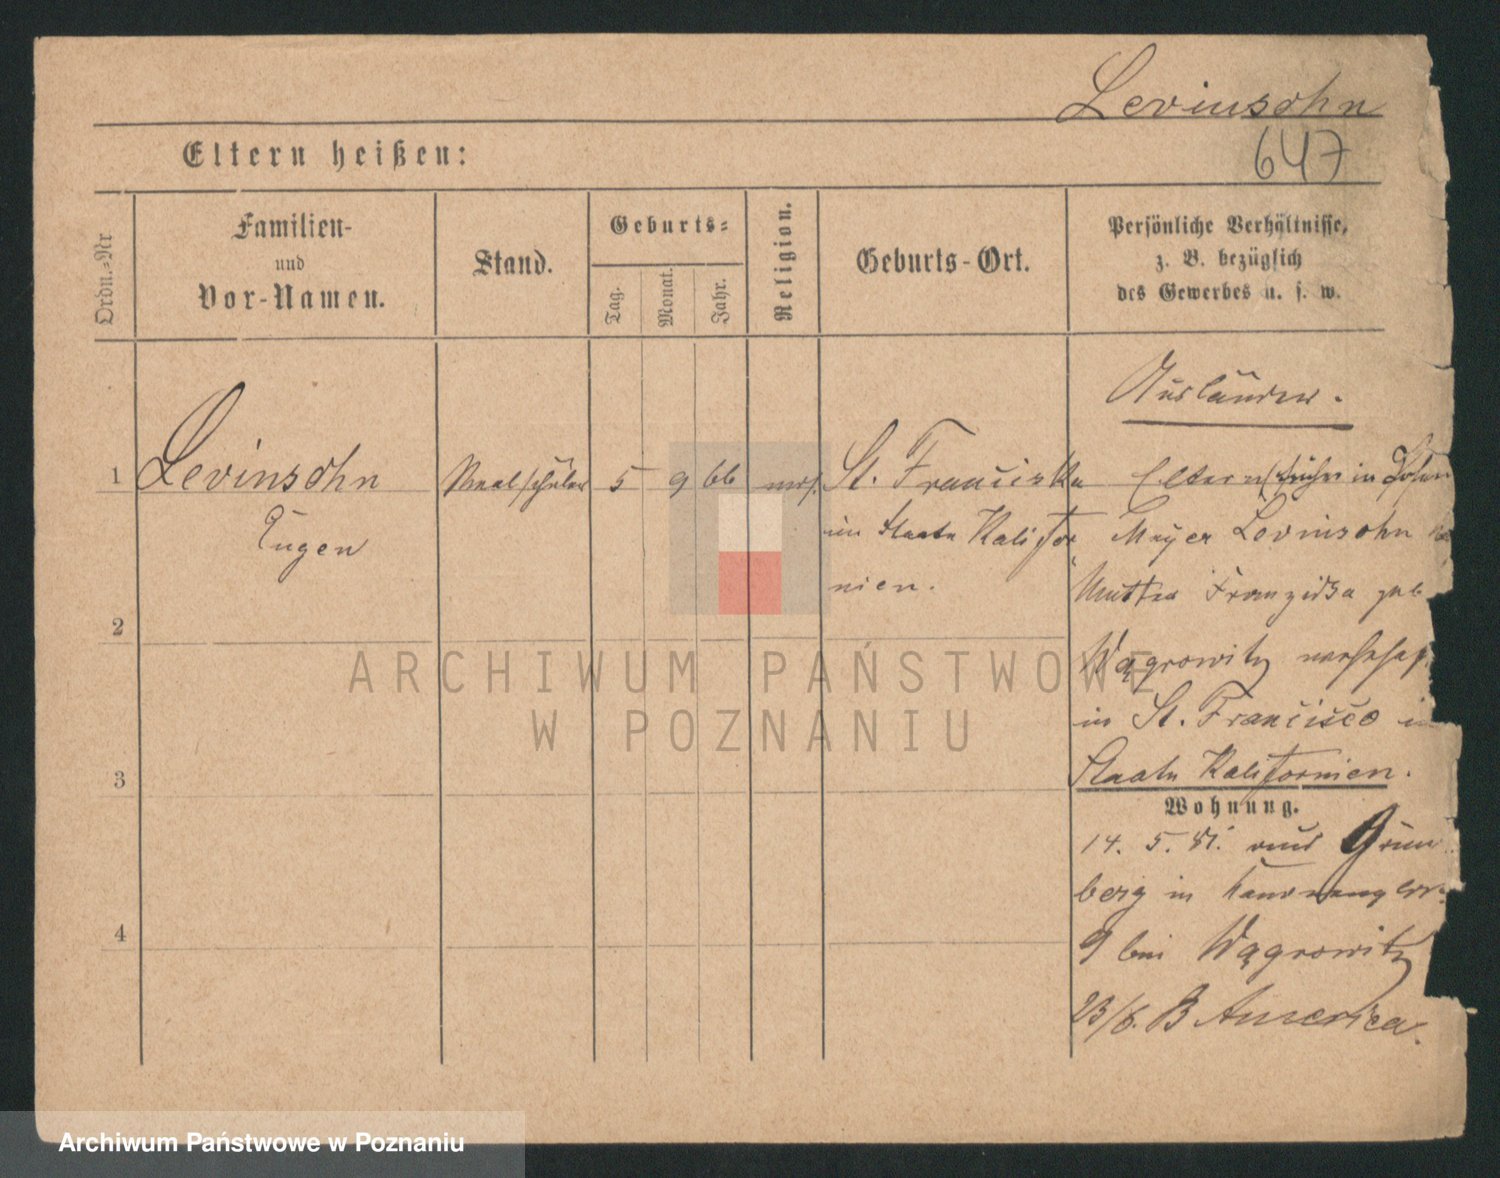 Levinsohn
647
Eltern heißen:
Ordn.=Nr
Familien-
und
Vor-Namen.
Stand.
Geburts=
Tag.
Monat.
Jahr.
Religion.
Geburts-Ort.
Persönliche Verhältnisse,
z. B. bezüglich
des Gewerbes u. s. w.
Ausländer.
1 Levinsohn Realschüler 5 9 66 mos. St. Franciska Eltern früher in Posen
Eugen im Staate Kalifor Meyer Levinsohn
nien. Mutter Franziska geb
2
Wągrowitz
in St. Francisco im
3 Staate Kalifornien.
Wohnung.
14. 5. 81. aus Grün
berg in
4
9 bei Wągrowitz
23/6. America.
ARCHIWUM PAŃSTWOWE
W POZNANIU
Archiwum Państwowe w Poznaniu